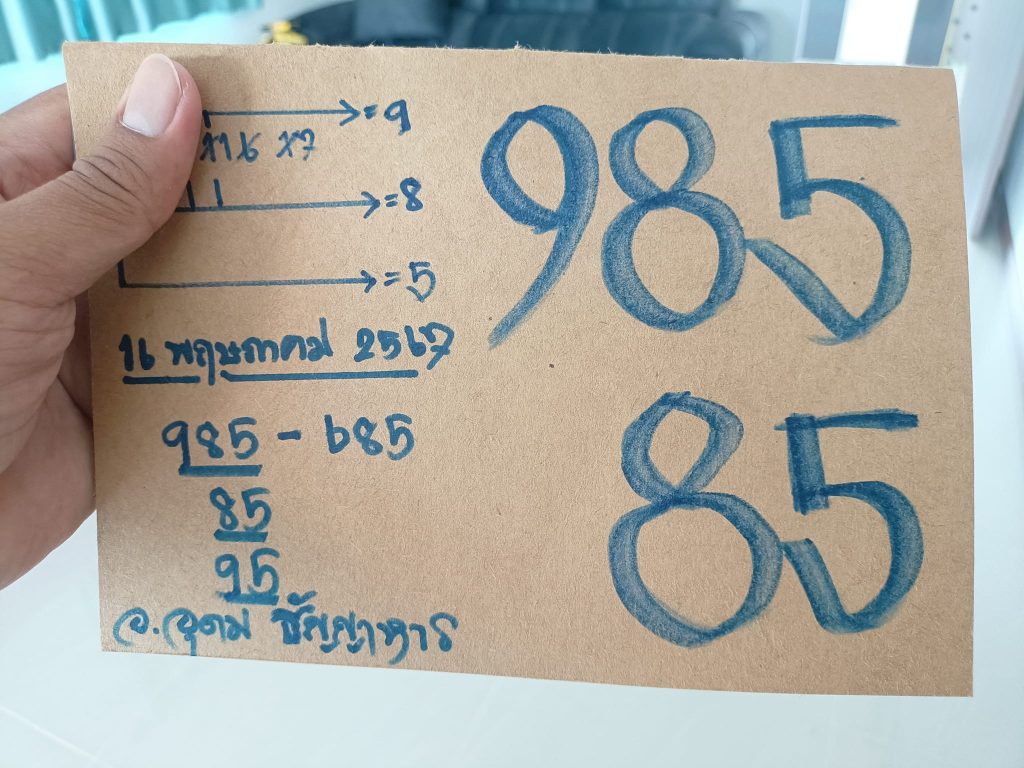 = 9
x7
= 8
= 5
16 พฤษภาคม 2567
985 - 685
85
95
อ.อุดม ชัยญาหาร
985
85